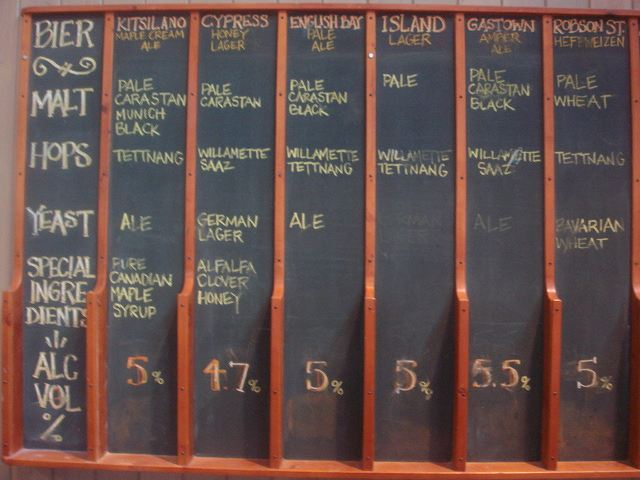 BIER
MALT
HOPS
YEAST
SPECIAL
INGRE
DIENTS
ALC
VOL
%
KITSILANO
MAPLE CREAM
ALE
PALE
CARASTAN
MUNICH
BLACK
TETTNANG
ALE
PURE
CANADIAN
MAPLE
SYRUP
5%
CYPRESS
HONEY
LAGER
PALE
CARASTAN
WILLAMETTE
SAAZ
GERMAN
LAGER
ALFALFA
CLOVER
HONEY
4.7%
ENGLISH BAY
PALE
ALE
PALE
CARASTAN
BLACK
WILLAMETTE
TETTNANG
ALE
5%
ISLAND
LAGER
PALE
WILLAMETTE
TETTNANG
GERMAN
5%
GASTOWN
AMBER
ALE
PALE
CARASTAN
BLACK
WILLAMETTE
SAAZ
ALE
5.5%
ROBSON ST.
HEFEWEIZEN
PALE
WHEAT
TETTNANG
BAVARIAN
WHEAT
5%